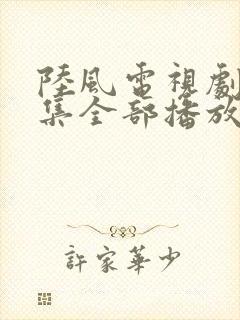 陸風電視劇
集全部播放
許家華少